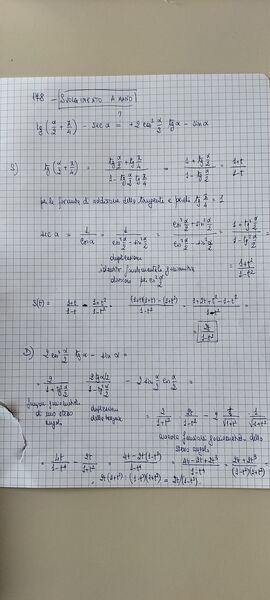 178 - SVOLGIMENTO A MANO
?
tg(α/2 + π/4) - sec α = +2 cos² α/2 tg α - sin α
S) tg(α/2 + π/4) = (tg α/2 + tg π/4)/(1 - tg α/2 tg π/4) = (1 + tg α/2)/(1 - tg α/2) = (1+t)/(1-t)
per le formule di addizione della tangente e poiché tg π/4 = 1
sec α = 1/cos α = 1/(cos² α/2 - sin² α/2) = (cos² α/2 + sin² α/2)/(cos² α/2 - sin² α/2) = (1 + tg² α/2)/(1 - tg² α/2)
duplicazione
identità fondamentale goniometrica
divisione per cos² α/2
= (1+t²)/(1-t²)
S(t) = (1+t)/(1-t) - (1+t²)/(1-t²) = ((1+t)(1+t) - (1+t²))/(1-t²) = (1+2t+t²-1-t²)/(1-t²)
= 2t/(1-t²)
D) 2 cos² α/2 tg α - sin α =
= 2/(1 + tg² α/2) · (2 tg α/2)/(1 - tg² α/2) - 2 sin α/2 cos α/2 =
funzioni goniometriche di uno stesso angolo
duplicazione della tangente
= 2/(1+t²) · 2t/(1-t²) - 2 t/√(1+t²) · 1/√(1+t²)
funzioni goniometriche dello stesso angolo
= 4t/(1-t⁴) - 2t/(1+t²) = (4t - 2t(1-t²))/(1-t⁴) = (4t - 2t + 2t³)/(1-t⁴) = (2t + 2t³)/((1-t²)(1+t²))
= 2t(1+t²) : (1-t²)(1+t²) = 2t/(1-t²).